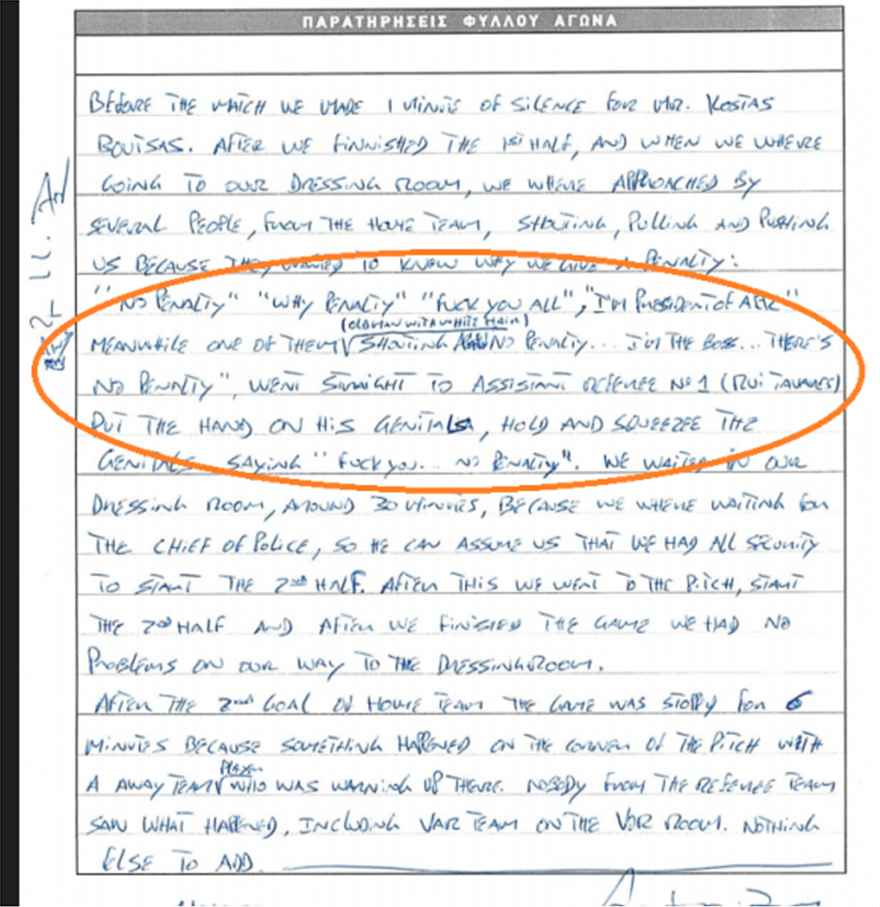 ΠΑΡΑΤΗΡΗΣΕΙΣ ΦΥΛΛΟΥ ΑΓΩΝΑ
BEFORE THE MATCH WE MADE 1 MINUTE OF SILENCE FOR MR. KOSTAS
BOUTSAS. AFTER WE FINNISHED THE 1ST HALF, AND WHEN WE WHERE
GOING TO OUR DRESSING ROOM, WE WHERE APPROACHED BY
SEVERAL PEOPLE, FROM THE HOME TEAM, SHOUTING, PULLING AND PUSHING
US BECAUSE THEY WANTED TO KNEW WHY WE GIVE A PENALTY:
"NO PENALTY" "WHY PENALTY" "FUCK YOU ALL", "I'M PRESIDENT OF AEK"
(OLD MAN WITH WHITE HAIR)
MEANWHILE ONE OF THEM √ SHOUTING NO PENALTY... I'M THE BOSS... THERE'S
NO PENALTY", WENT STRAIGHT TO ASSISTANT REFEREE Nº1 (RUI TAVARES)
PUT THE HAND ON HIS GENITALS, HOLD AND SQUEEZEE THE
GENITALS SAYING "FUCK YOU... NO PENALTY". WE WAITED IN OUR
DRESSING ROOM, AROUND 30 MINUTES, BECAUSE WE WHERE WAITING FOR
THE CHIEF OF POLICE, SO HE CAN ASSUME US THAT WE HAD ALL SECURITY
TO START THE 2nd HALF. AFTER THIS WE WENT TO THE PITCH, START
THE 2nd HALF AND AFTER WE FINISHED THE GAME WE HAD NO
PROBLEMS ON OUR WAY TO THE DRESSING ROOM.
AFTER THE 2nd GOAL OF HOME TEAM THE GAME WAS STOPPED FOR 6
MINUTES BECAUSE SOMETHING HAPPENED ON THE CORNER OF THE PITCH WITH
PLAYER
A AWAY TEAM √ WHO WAS WARMING UP THERE. NOBODY FROM THE REFEREE TEAM
SAW WHAT HAPPENED, INCLUDING VAR TEAM ON THE VOR ROOM. NOTHING
ELSE TO ADD